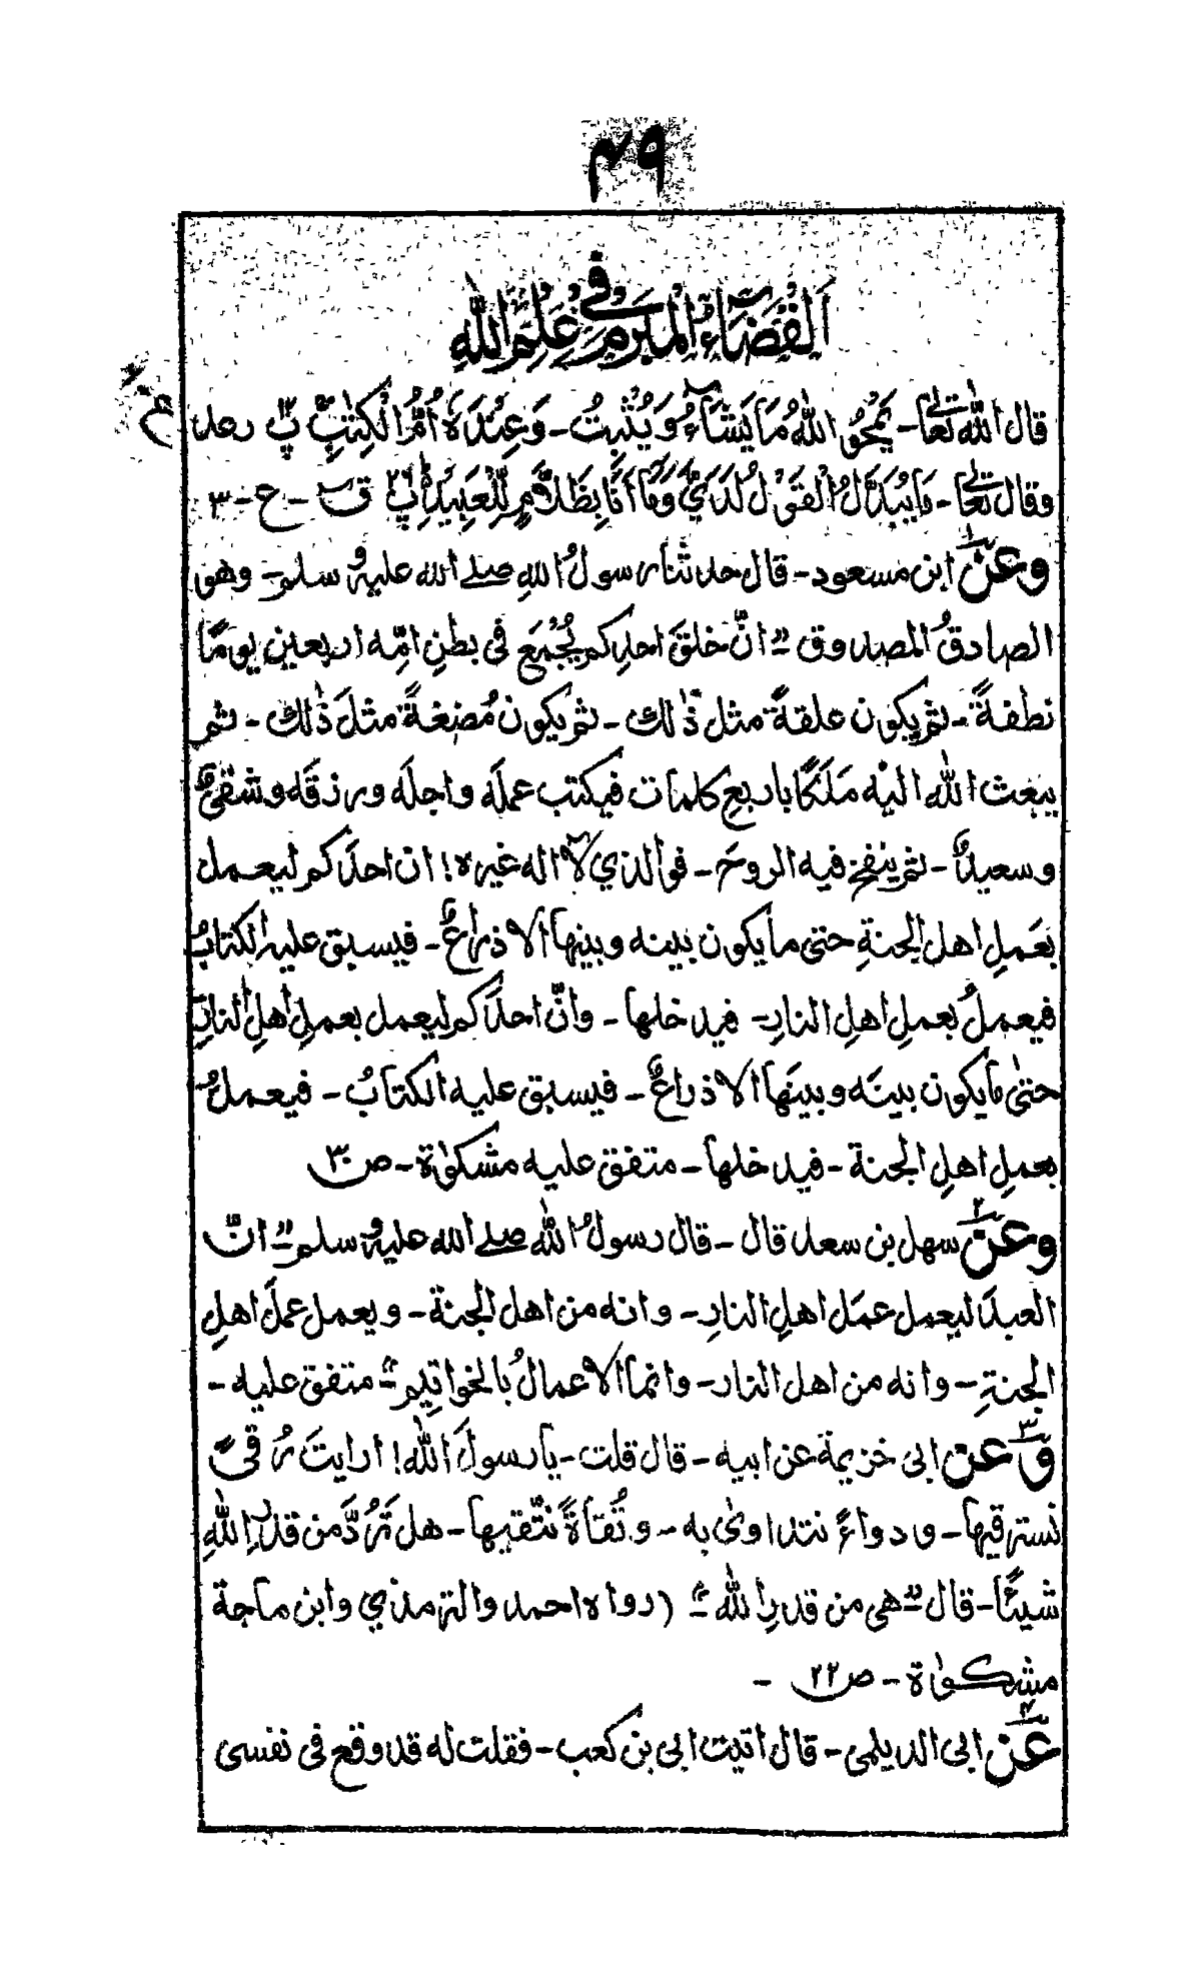 ۴۹
اَلْقَضَآءُ الْمُبْرَمُ فِيْ عِلْمِ اللّٰهِ
قال اللّٰه تعالٰى۔ يَمْحُو اللّٰهُ مَا يَشَآءُ وَيُثْبِتُ۔ وَعِنْدَهٗ اُمُّ الْكِتٰبِ پ۱۳ رعد
وقال تعالٰى۔ مَا يُبَدَّلُ الْقَوْلُ لَدَيَّ وَمَا اَنَا بِظَلَّامٍ لِّلْعَبِيْدِ پ۲۶ ق۔ ح۔ ۳
وعن ابن مسعود۔ قال حدثنا رسولُ اللهِ صلے الله عليه و سلم۔ وهو
الصادقُ المصدوق " انّ خلقَ احدِكم يُجْمَعَ فى بطنِ امِّه اربعين يومًا
نطفةً۔ ثم يكون علقةً مثل ذٰلك۔ ثم يكون مُضغةً مثلَ ذٰلك۔ ثم
يبعث اللّٰه اليْه مَلَكًا باربعِ كلمات فيكتب عملَه واجلَه ورزقَه وشقىٌّ
وسعيدٌ۔ ثم ينفخ فيه الروحَ۔ فوالذي لا اله غيره! ان احدَكم ليعمل
بعَملِ اهل الجنةِ حتى ما يكون بينه وبينها الا ذراعٌ۔ فيسبق عليه الكتابُ
فيعملُ بعملِ اهلِ النارِ۔ فيدخلها۔ وانّ احدَكم ليعمل بعملِ اهلِ النارِ
حتىٰ مايكون بينَه وبينَها الا ذراعٌ۔ فيسبق عليه الكتابُ۔ فيعملُ
بعملِ اهلِ الجنة۔ فيدخلها۔ متفق عليه مشكوٰة۔ ص۳۰
وعن سهل بن سعد قال۔ قال رسولُ اللّٰه صلے الله عليه و سلم " انّ
العبدَ ليعمل عمَل اهلِ النارِ۔ وانه من اهل الجنة۔ ويعمل عملَ اهلِ
الجنةِ۔ وانه من اهل النار۔ وانما الاعمالُ بالخواتيم " متفق عليه۔
وعن ابى خزيمة عن ابيه۔ قال قلت۔ يا رسولَ اللّٰه! ارايتَ رُقىً
نسترقيها۔ ودواءً نتداوىٰ به۔ وتُقاةً نتّقيها۔ هل تَرُدَّ من قدرِ اللّٰهِ
شيئًا۔ قال " هى من قدرِ اللّٰه " (رواه احمد والترمذي وابن ماجة
مشكوٰة۔ ص۲۲۔
عن ابى الديلمى۔ قال اتيت ابى بن كعب۔ فقلت له قد وقع فى نفسى